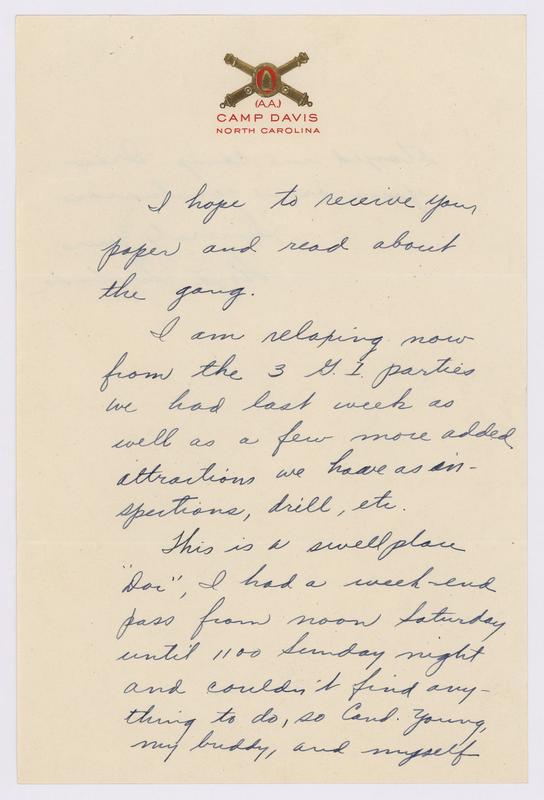 (A.A.)
CAMP DAVIS
NORTH CAROLINA
I hope to receive your
paper and read about
the gang.
I am relaxing now
from the 3 G.I. parties
we had last week as
well as a few more added
attractions we have as in-
spections, drill, etc.
This is a swell place
"Doc", I had a week-end
pass from noon Saturday
until 1100 Sunday night
and couldn't find any-
thing to do, so Cand. Young,
my buddy, and myself